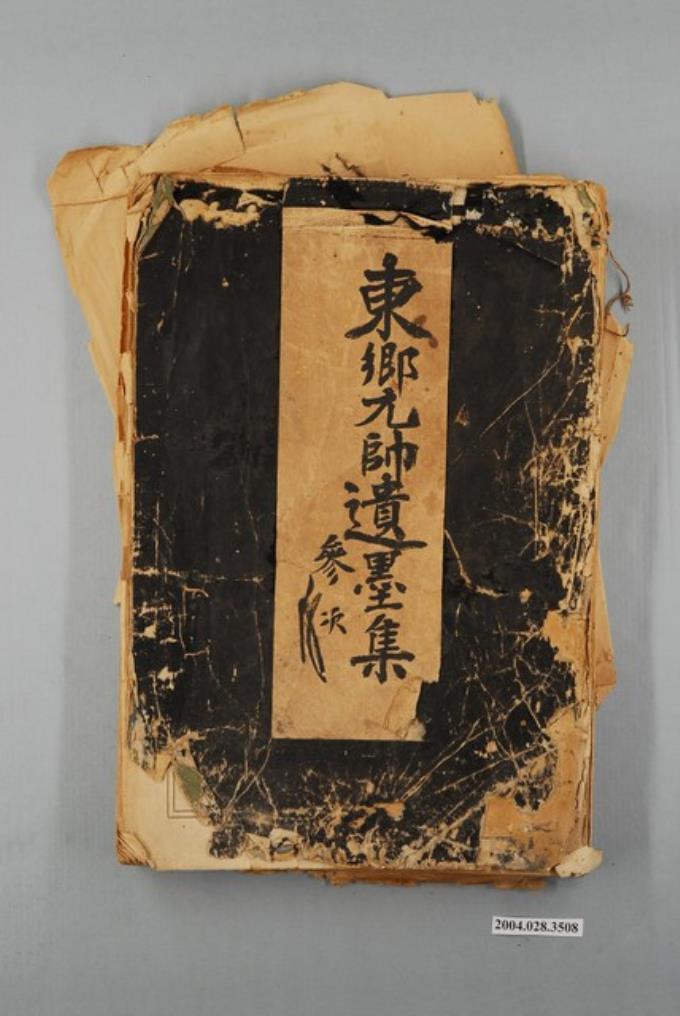 東鄉元帥遺墨集
參次
2004.028.3508